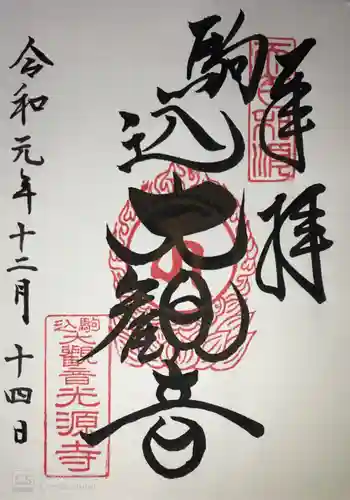 奉拝
駒込
大観音
令和元年十二月十四日
駒込
大觀音光源寺